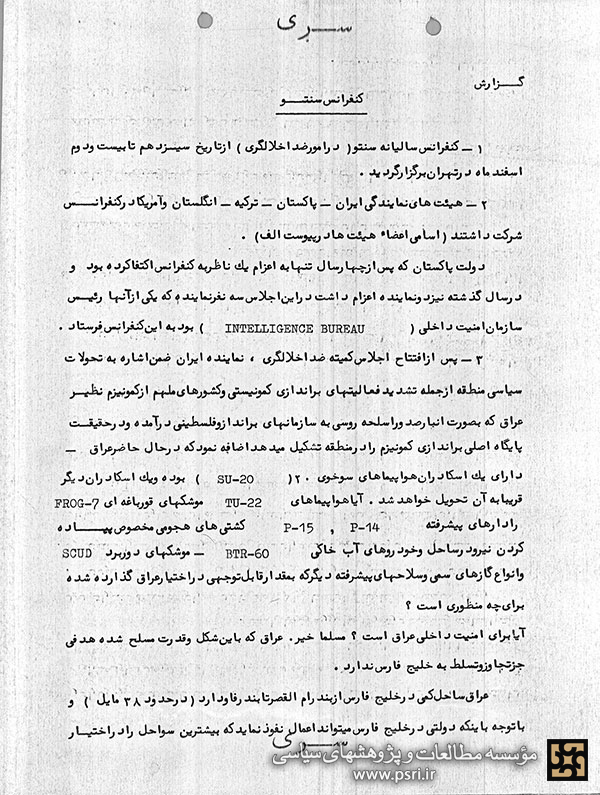 سری
گزارش
کنفرانس سنتو
۱ – کنفرانس سالیانه سنتو ( در امور ضد اخلالگری ) از تاریخ سیزدهم تا بیست و دوم
اسفند ماه در تهران برگزار گردید .
۲ – هیئت های نمایندگی ایران – پاکستان – ترکیه – انگلستان و آمریکا در کنفرانس
شرکت داشتند ( اسامی اعضاء هیئت ها در پیوست الف ) .
دولت پاکستان که پس از چهار سال تنها به اعزام یک ناظر به کنفرانس اکتفا کرده بود و
در سال گذشته نیز دو نماینده اعزام داشت در این اجلاس سه نفر نماینده که یکی از آنها رئیس
سازمان امنیت داخلی ( INTELLIGENCE BUREAU ) بود به این کنفرانس فرستاد .
۳ – پس از افتتاح اجلاس کمیته ضد اخلالگری ، نماینده ایران ضمن اشاره به تحولات
سیاسی منطقه از جمله تشدید فعالیتهای براندازی کمونیستی و کشورهای ملهم از کمونیزم نظیر
عراق که بصورت انبار صدور اسلحه روسی به سازمانهای برانداز و فلسطینی درآمده و در حقیقت
پایگاه اصلی براندازی کمونیزم را در منطقه تشکیل میدهد اضافه نمود که در حال حاضر عراق –
دارای یک اسکادران هواپیماهای سوخوی ۲۰ ( SU-20 ) بوده و یک اسکادران دیگر
قریبا به آن تحویل خواهد شد . آیا هواپیماهای TU-22 موشکهای قورباغه ای FROG-7
رادارهای پیشرفته P-14 , P-15 کشتی های هجومی مخصوص پیاده
کردن نیرو در ساحل و خودروهای آب خاکی BTR-60 – موشکهای دوربرد SCUD
و انواع گازهای سمی و سلاحهای پیشرفته دیگر که بمقدار قابل توجهی در اختیار عراق گذارده شده
برای چه منظوری است ؟
آیا برای امنیت داخلی عراق است ؟ مسلما خیر . عراق که باین شکل و قدرت مسلح شده هدفی
جز تجاوز و تسلط به خلیج فارس ندارد .
عراق ساحل کمی در خلیج فارس از بندر ام القصر تا بندر فاو دارد ( در حدود ۳۸ مایل ) و
با توجه باینکه دولتی در خلیج فارس میتواند اعمال نفوذ نماید که بیشترین سواحل را در اختیار
سری
مؤسسه مطالعات و پژوهشهای سیاسی
www.psri.ir